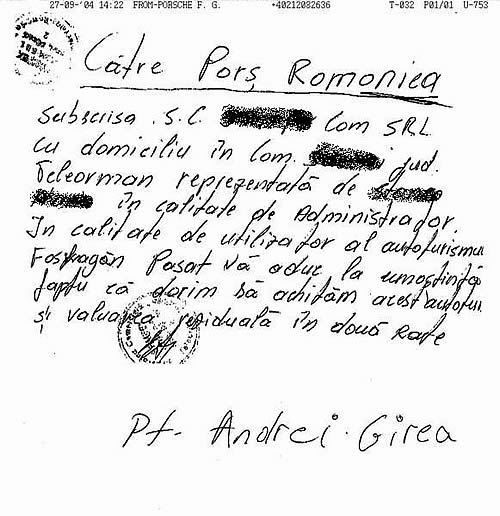 27-09-'04 14:22 FROM-PORSCHE F. G. +40212082636 T-032 P01/01 U-753
Către Porș Romoniea
Subscrisa S.C. Com SRL
cu domiciliu în Com. jud.
Teleorman reprezentată de
în calitate de Administrator.
In calitate de utilizator al autoturismu
Fosfragăn Pasat Vă aduc la umoștință
faptu că dorim să achităm acest autotu
și valuarea reziduală în două Rate
Pt. Andrei Girea